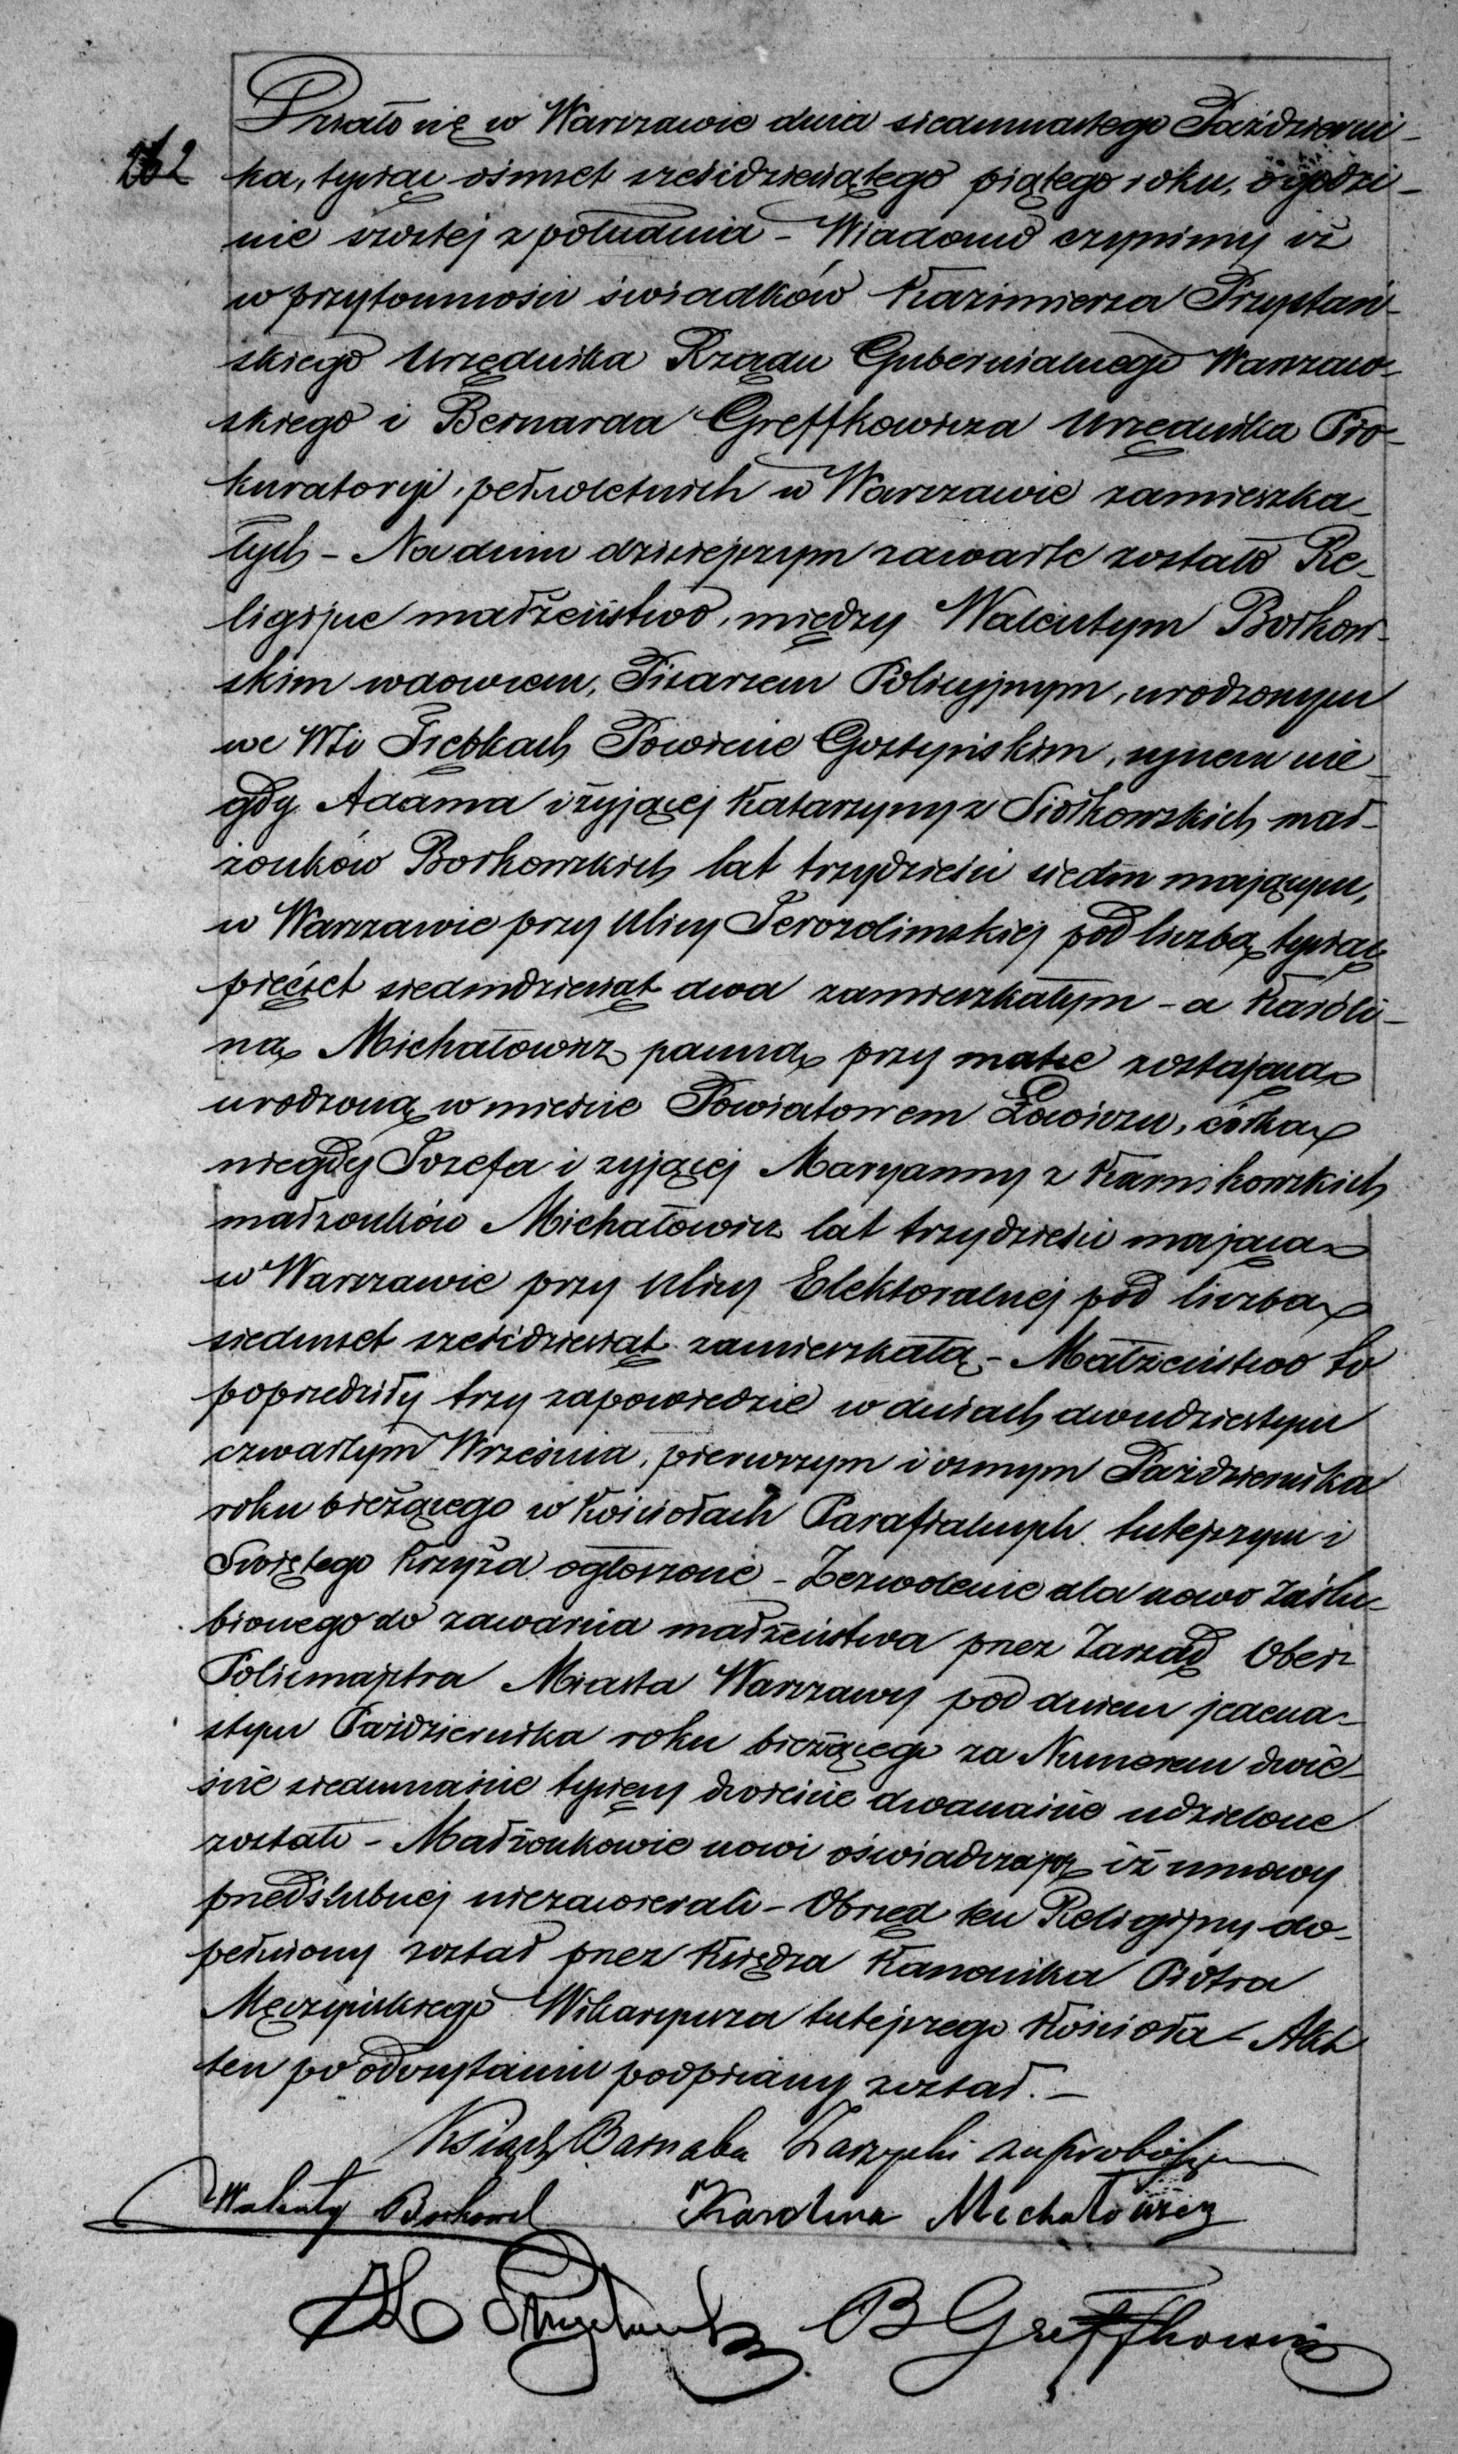 262
Działo się w Warszawie dnia siedmnastego Październi-
ka, tysiąc ośmset sześćdziesiątego piątego roku, o godzi-
nie szóstej z południa – Wiadomo czynimy iż
w przytomności świadków Kazimierza Przystań-
skiego Urzędnika Rządu Gubernialnego Warszaw-
skiego i Bernarda Greffkowicza Urzędnika Pro-
kuratoryi, pełnoletnich w Warszawie zamieszka-
łych – Na dniu dzisiejszym zawarte zostało Re-
ligijne małżeństwo, między Walentym Borkow-
skim wdowcem, Pisarzem Policyjnym, urodzonym
we Wsi Trębkach Powiecie Gostyńskim, synem nie-
gdy Adama i żyjącej Katarzyny z Siółkowskich mał-
żonków Borkowskich lat trzydzieści siedm mającym,
w Warszawie przy Ulicy Jerozolimskiej pod liczbą tysiąc
pięćset siedmdziesiąt dwa zamieszkałym – a Karoli-
ną Michałowicz panną przy matce zostającą
urodzoną w mieście Powiatowem Łowiczu, córką
niegdy Józefa i żyjącej Maryanny z Karnikowskich
małżonków Michałowicz lat trzydzieści mającą
w Warszawie przy Ulicy Elektoralnej pod liczbą
siedmset sześćdziesiąt zamieszkałą – Małżeństwo to
poprzedziły trzy zapowiedzie w dniach dwudziestym
czwartym Września, pierwszym i osmym Października
roku bieżącego w Kościołach Parafialnych tutejszym i
Świętego Krzyża ogłoszone – Zezwolenie dla nowo zaślu-
bionego do zawarcia małżeństwa przez Zarząd Ober
Policmajstra Miasta Warszawy pod dniem jedena-
stym Października roku bieżącego za Numerem dwie-
ście siedmnaście tysięcy dwieście dwanaście udzielone
zostało – Małżonkowie nowi oświadczają iż umowy
przedślubnej niezawierali – Obrzęd ten Religijny do-
pełniony został przez Księdza Kanonika Piotra
Męczyńskiego Wikaryusza tutejszego Kościoła – Akt
ten po odczytaniu podpisany został. –
Ksiądz Barnaba Zarzycki za Proboszcza
Walenty Borkowski Karolina Michałowicz
B Greffkowicz